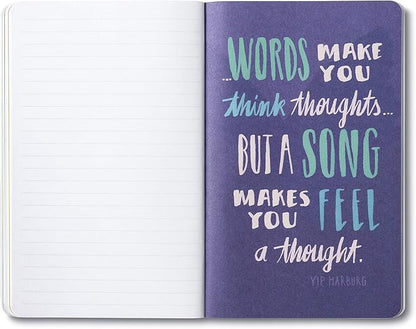 ...WORDS MAKE
YOU
think thoughts...
BUT A SONG
MAKES
YOU FEEL
a thought.
YIP HARBURG